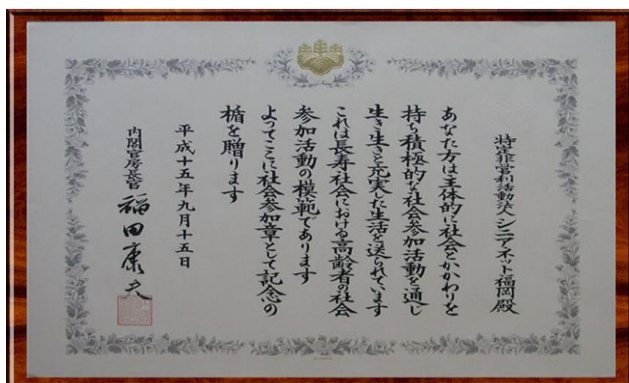 特定非営利活動法人シニアネット福岡殿
あなた方は主体的に社会とかかわりを
持ち積極的な社会参加活動を通し
生き生きと充実した生活を送られています
これは長寿社会における高齢者の社会
参加活動の模範であります
よってここに社会参加章として記念の
楯を贈ります
平成十五年九月十五日
内閣官房長官 福田康夫